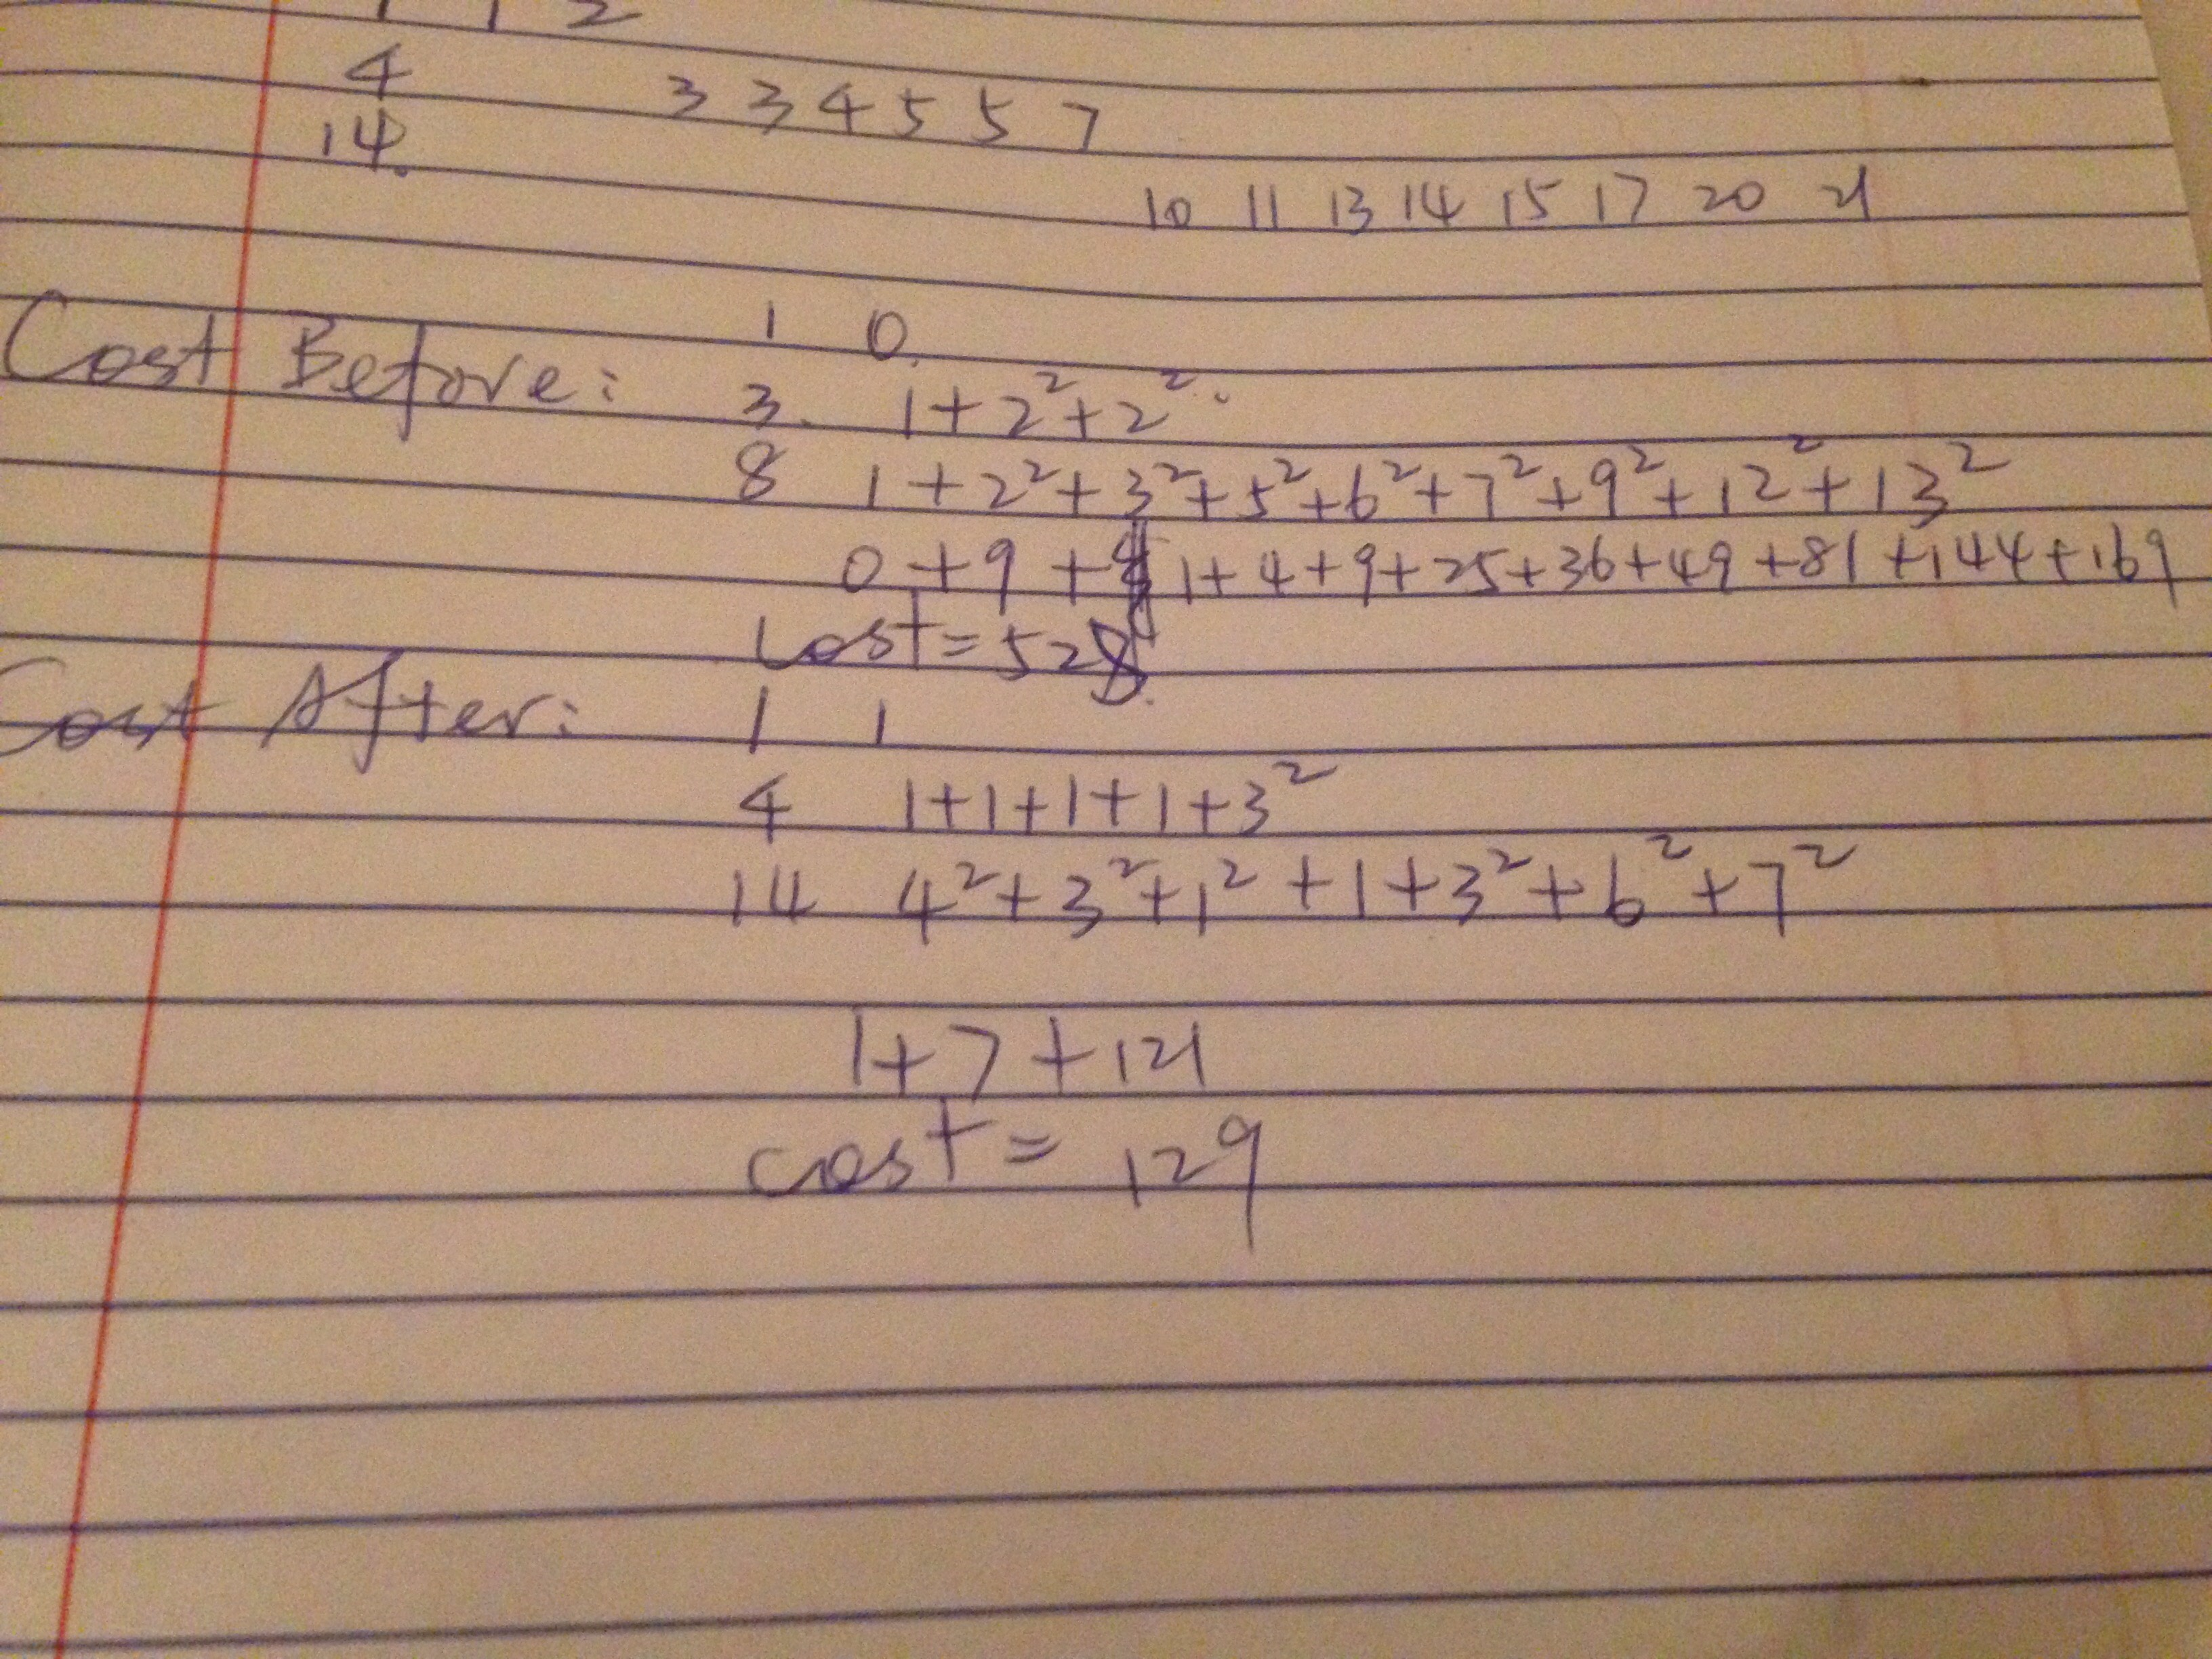 1 1 2
4 3 3 4 5 5 7
14. 10 11 13 14 15 17 20 21
Cost Before: 1 0.
3. 1+2²+2².
8 1+2²+3²+5²+6²+7²+9²+12²+13²
0+9+ 1+4+9+25+36+49+81+144+169
Cost=528.
Cost After: 1 1
4 1+1+1+1+3²
14 4²+3²+1²+1+3²+6²+7²
1+7+121
cost= 129